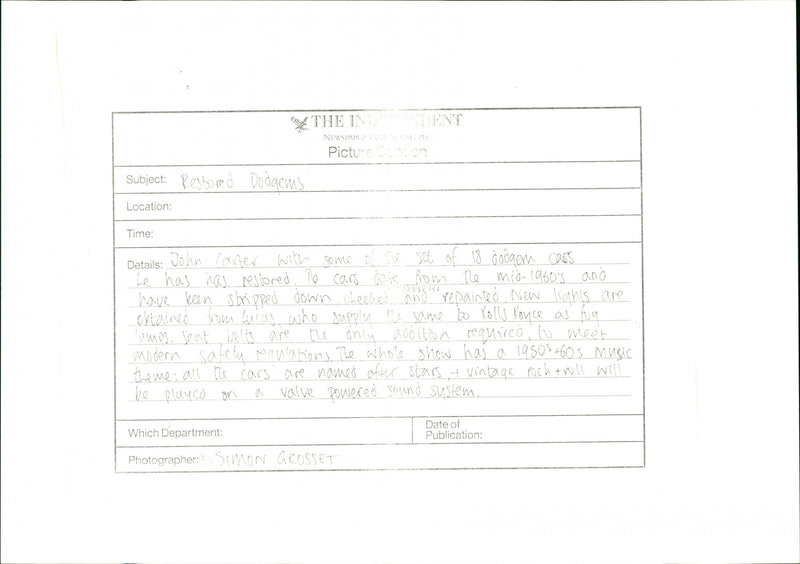 THE INDEPENDENT
NEWSPAPER PUBLISHING PLC
Picture Section
Subject: Restored Dodgems
Location:
Time:
Details: John Carter with some of the set of 18 dodgem cars
he has has restored. The cars date from the mid-1960's and
have been stripped down, checked, and repainted. New lights are
obtained from Lucas, who supply the same to Rolls Royce as fog
lamps. Seat belts are the only addition required, to meet
modern safety regulations. The whole show has a 1950s+60s music
theme: all the cars are named after stars, + vintage rock+roll will
be played on a valve powered sound system.
Which Department:
Date of
Publication:
Photographer: SIMON GROSSET